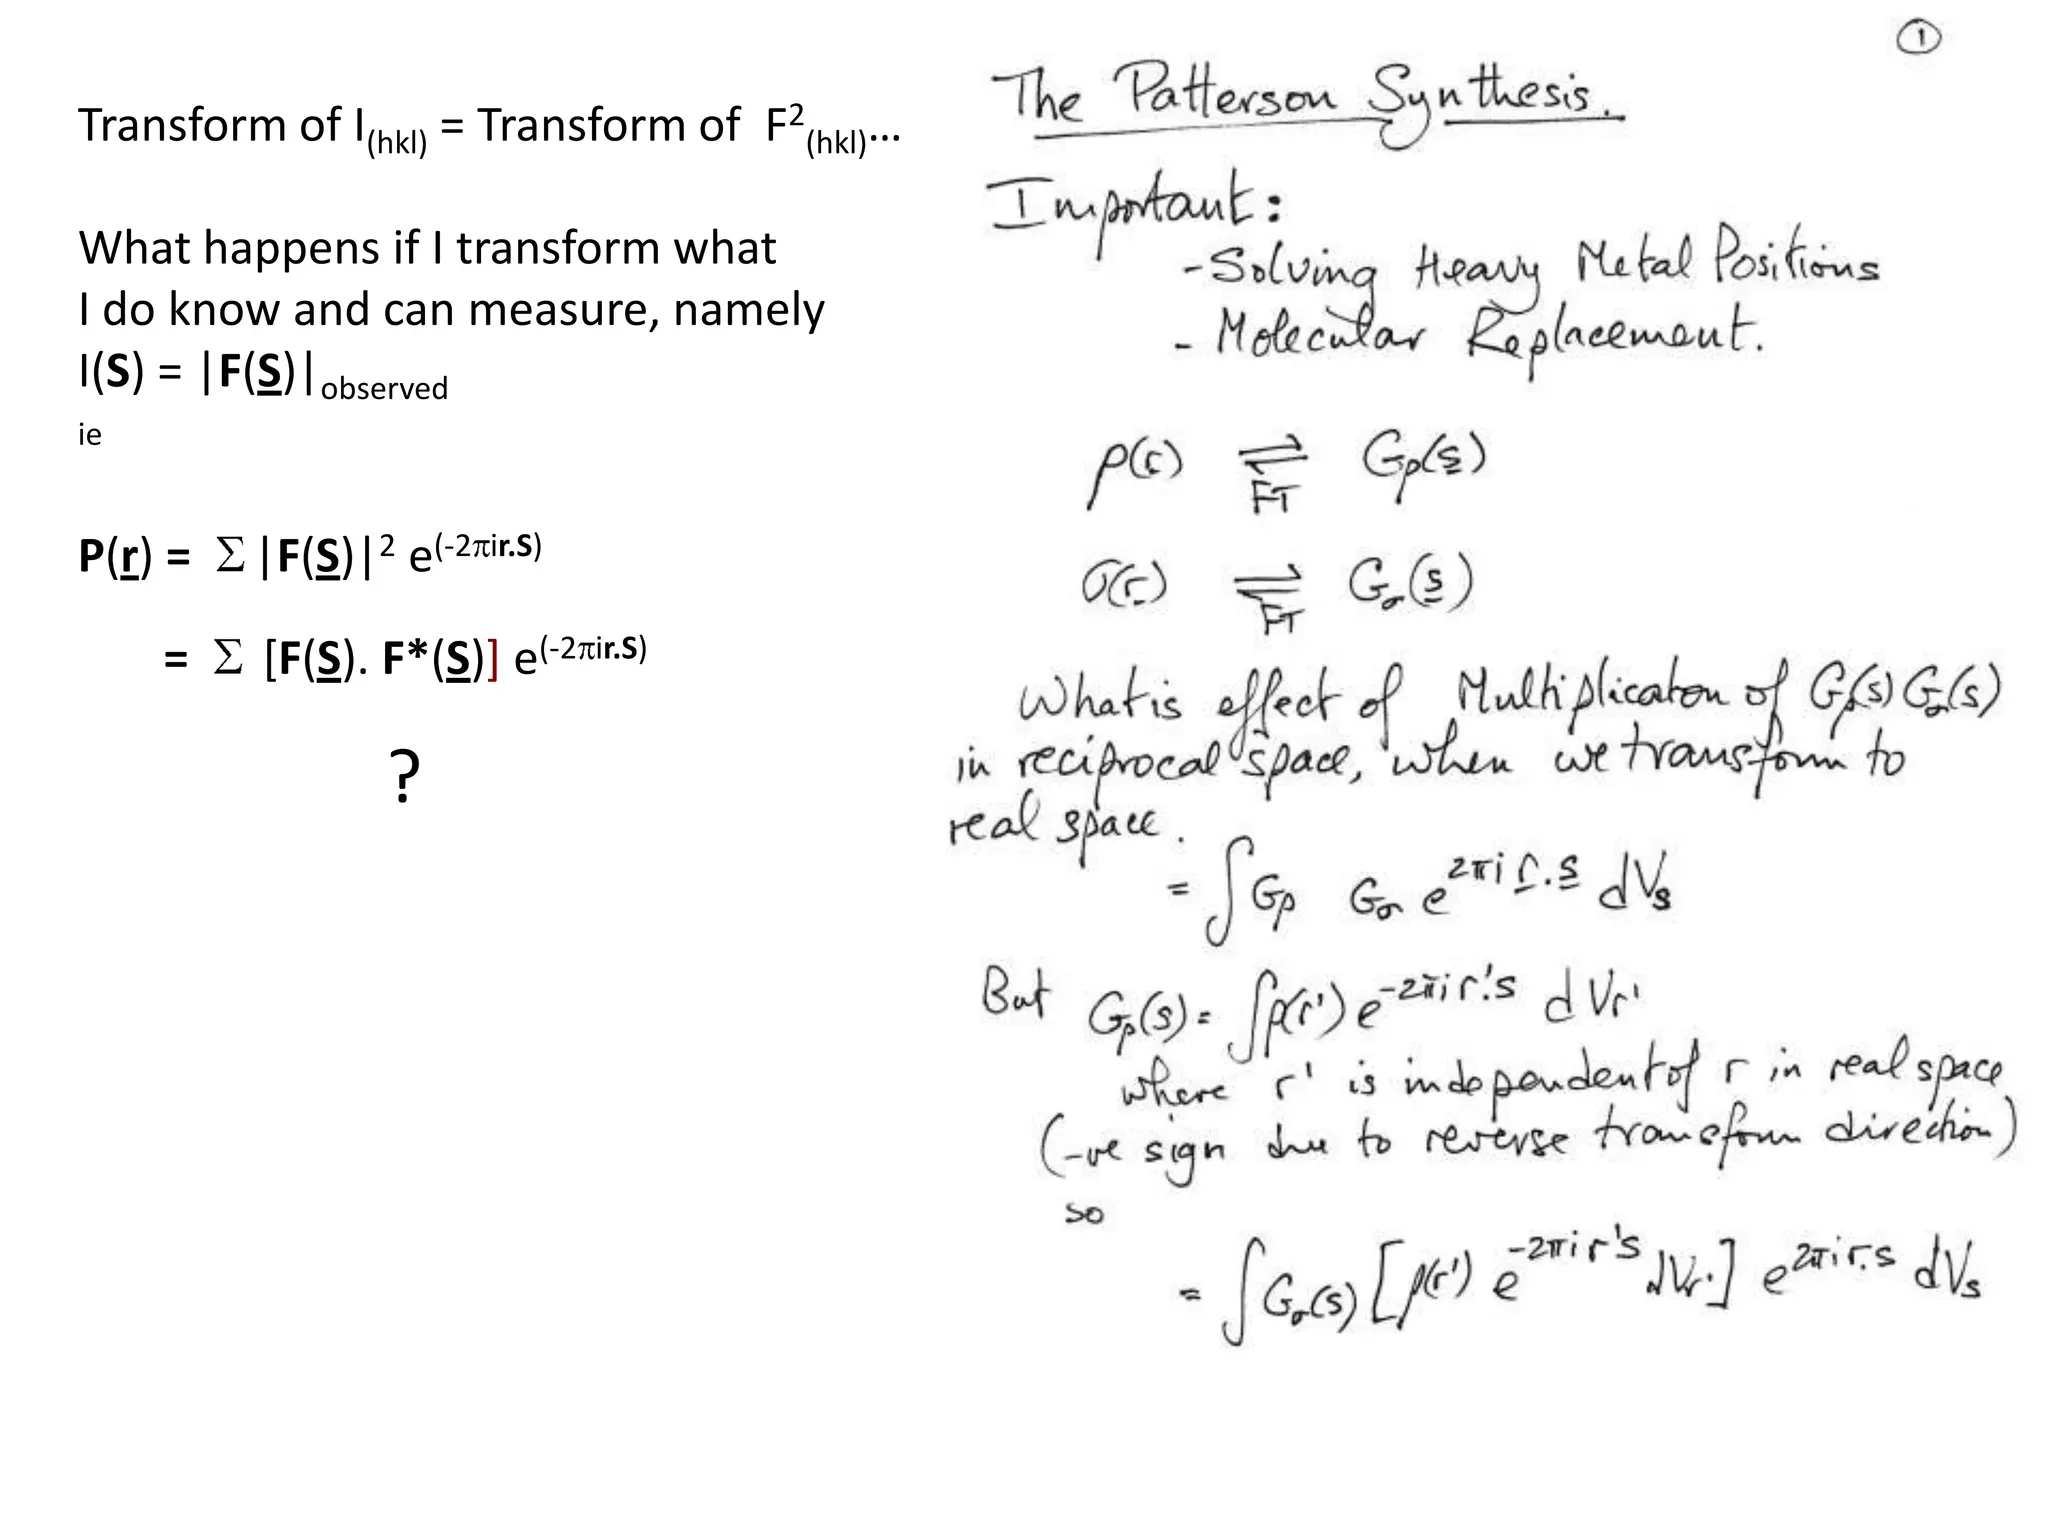 Transform of I(hkl) = Transform of F²(hkl)...
What happens if I transform what
I do know and can measure, namely
I(S) = |F(S)|observed
ie
P(r) = Σ |F(S)|² e^(-2πir.S)
= Σ [F(S). F*(S)] e^(-2πir.S)
?
①
The Patterson Synthesis.
Important:
- Solving Heavy Metal Positions
- Molecular Replacement.
ρ(r) ⇌ Gρ(s)
FT
σ(r) ⇌ Gσ(s)
FT
What is effect of Multiplication of Gρ(s) Gσ(s)
in reciprocal space, when we transform to
real space.
= ∫Gρ Gσ e^2πi r.s dVs
But Gρ(s) = ∫ρ(r') e^-2πi r'.s dVr'
where r' is independent of r in real space
(-ve sign due to reverse transform direction)
so
= ∫Gσ(s) [ρ(r') e^-2πi r's dVr'] e^2πi r.s dVs